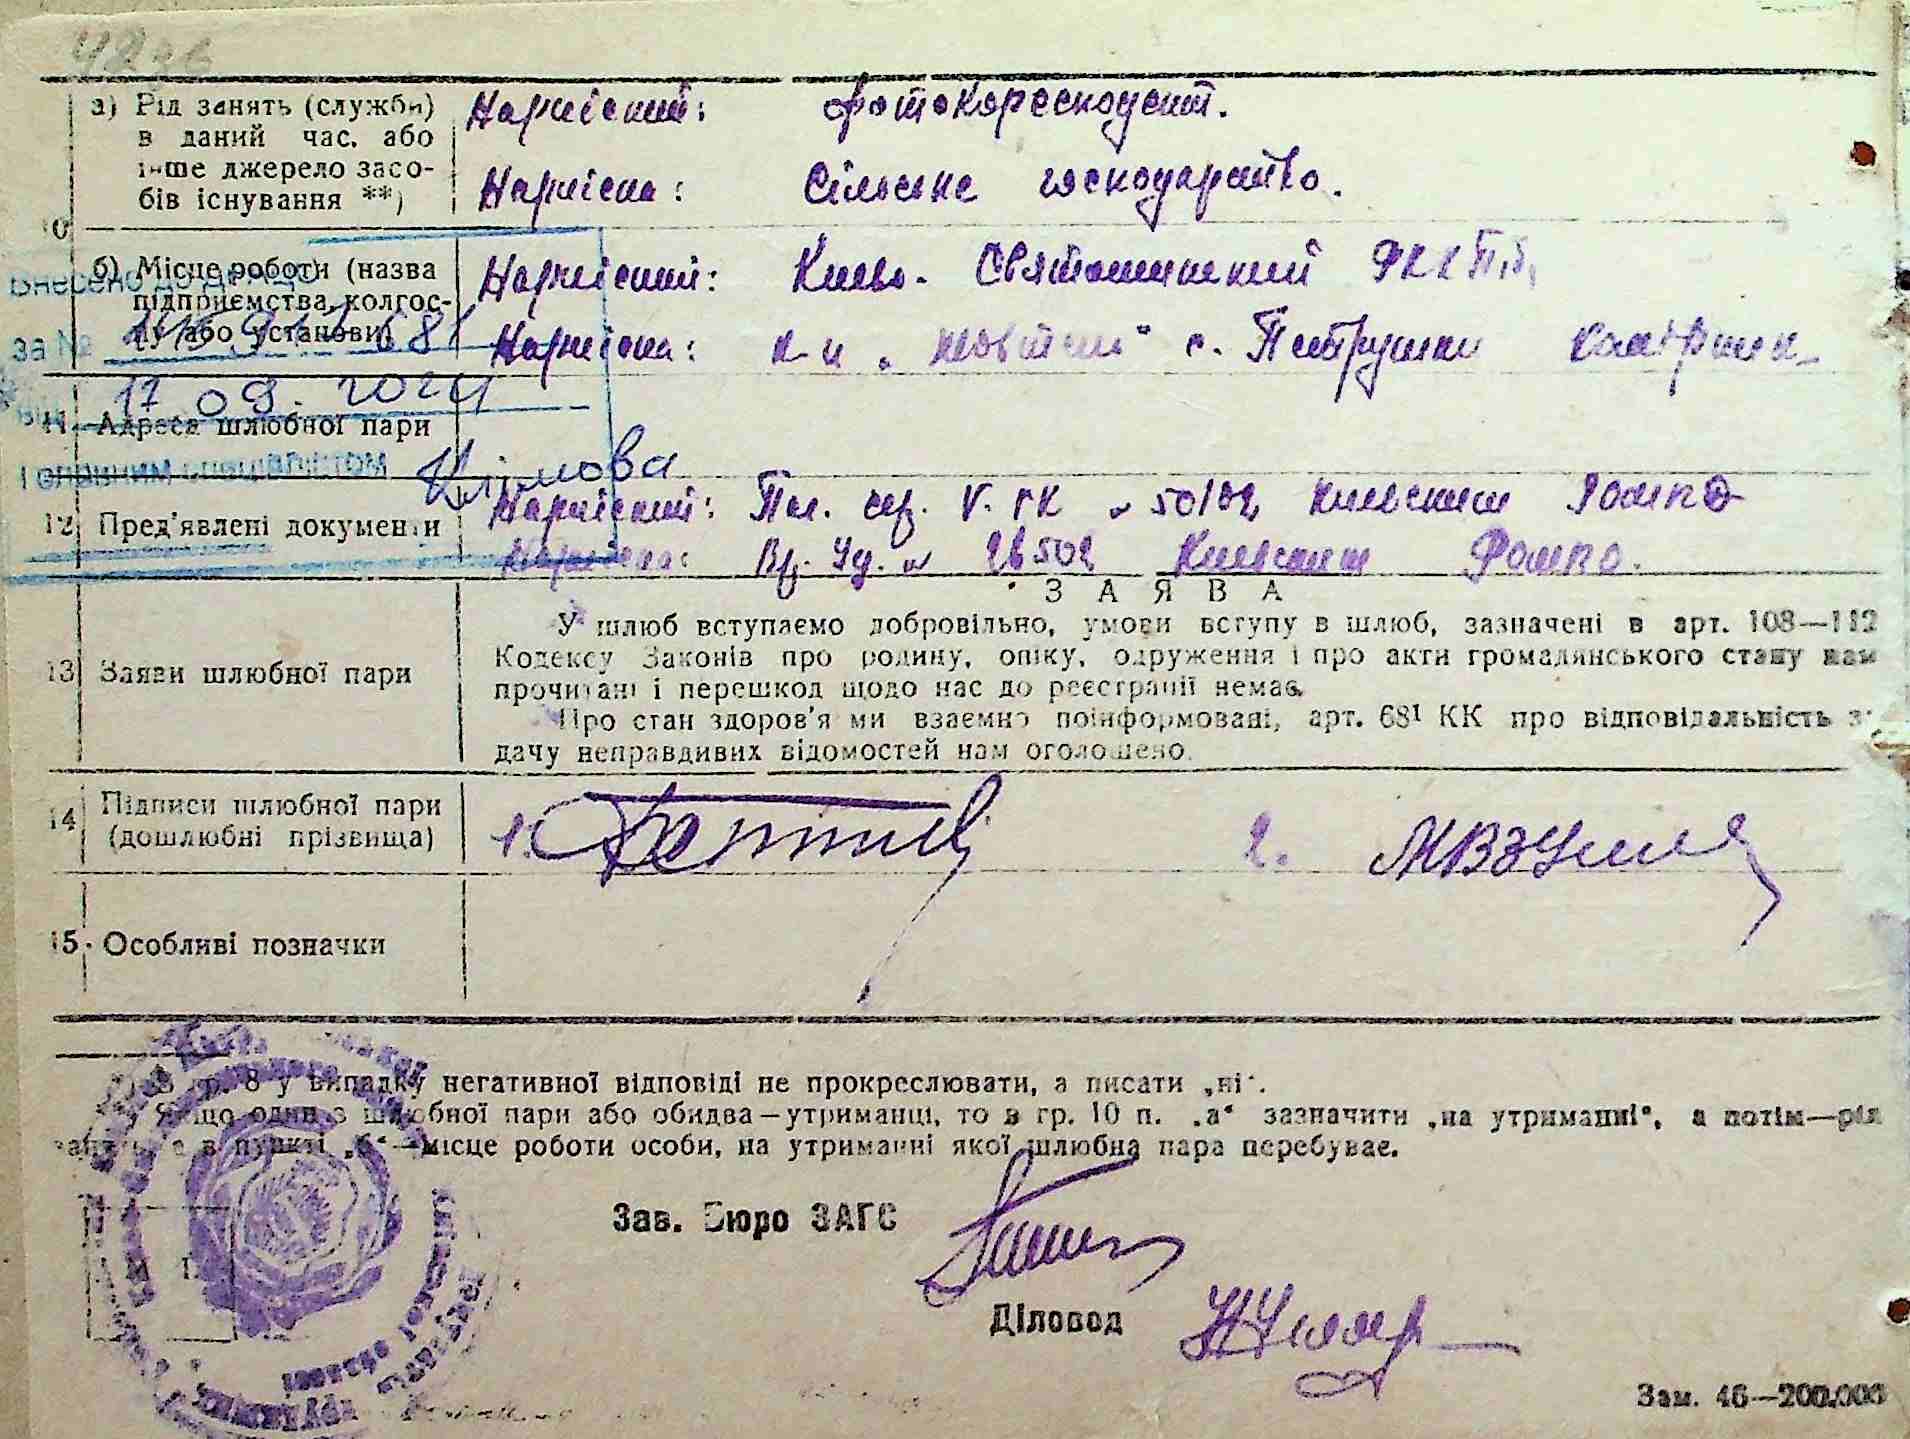 а) Рід занять (служби) в даний час, або інше джерело засобів існування **)
Наречений: фотокореспондент.
Наречена: Сільське господарство.
10
б) Місце роботи (назва підприємства, колгоспу або установи)
Наречений: Києво-Святошинський РККПБ,
Наречена: к-п „Жовтень" с. Петрушки
Внесено до ДРАЦС
за №
17 09. 2024
Головним спеціалістом Клімова
11. Адреса шлюбної пари
12 Пред'явлені документи
Наречений: V. ГК 50102 Киевским
Наречена: Вр. Уд. 26502 Киевским
ЗАЯВА
13 Заяви шлюбної пари
У шлюб вступаємо добровільно, умови вступу в шлюб, зазначені в арт. 108—112
Кодексу Законів про родину, опіку, одруження і про акти громадянського стану нам
прочитані і перешкод щодо нас до реєстрації немає.
Про стан здоров'я ми взаємно поінформовані, арт. 68¹ КК про відповідальність за
дачу неправдивих відомостей нам оголошено.
14 Підписи шлюбної пари (дошлюбні прізвища)
1. 2.
15. Особливі позначки
гр. 8 у випадку негативної відповіді не прокреслювати, а писати „ні".
Якщо один з шлюбної пари або обидва—утриманці, то в гр. 10 п. „а" зазначити „на утриманні", а потім—рід
занять, а в пункті „б"—місце роботи особи, на утриманні якої шлюбна пара перебуває.
М. П.
Зав. Бюро ЗАГС
Діловод
Зам. 46—200.000